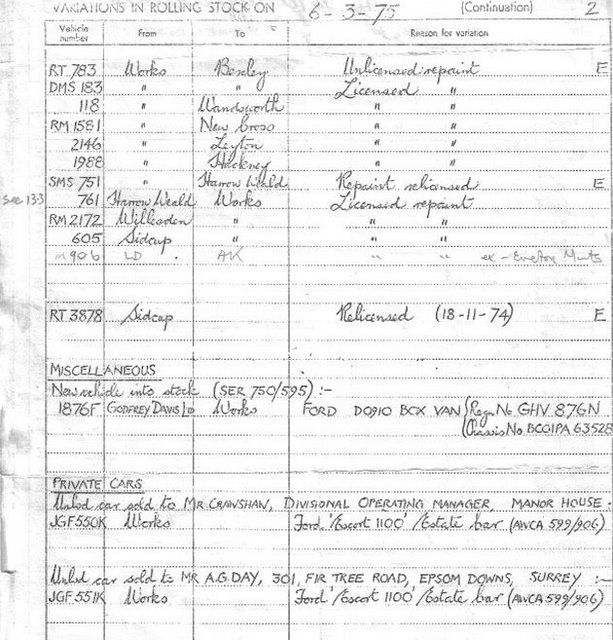 VARIATIONS IN ROLLING STOCK ON 6-3-75 (Continuation) 2
Vehicle number From To Reason for variation
RT 783 Works Bexley Unlicensed repaint E
DMS 183 " " Licensed "
118 " Wandsworth " "
RM 1581 " New Cross " "
2146 " Leyton " "
1988 " Hackney " "
SMS 751 " Harrow Weald Repaint relicensed E
see 13.3 761 Harrow Weald Works Licensed repaint
RM 2172 Willesden " " "
605 Sidcup " " "
M906 LD AK " " ex-
RT 3878 Sidcup Relicensed (18-11-74) E
MISCELLANEOUS
New vehicle into stock (SER 750/595) :-
1876F GODFREY DAVIS LD Works FORD D0910 BOX VAN (Regn No. GHV 876N
(Chassis No. BCO1PA 63528
PRIVATE CARS
Unlsd car sold to MR CRAWSHAN, DIVISIONAL OPERATING MANAGER, MANOR HOUSE.
JGF550K Works Ford 'Escort 1100' Estate Car (AWCA 599/906)
Unlsd car sold to MR A.G. DAY, 301, FIR TREE ROAD, EPSOM DOWNS, SURREY :-
JGF 551K Works Ford 'Escort 1100' Estate Car (AWCA 599/906)